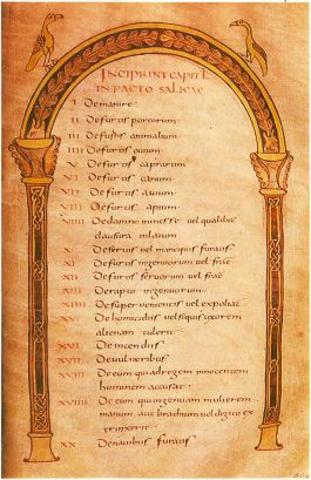 INCIPIUNT CAPITL
IN PACTO SALICAE
I De manire
II De furtis porcorum
III De furtis animalium
IIII De furtis ouium
V De furtis caprarum
VI De furtis canum
VII De furtis auium
VIII De furtis apium
VIIII De damno in messe uel qualibet
clausura inlatum
X De seruis uel mancipiis furatis
XI De furtis ingenuorum uel fract
XII De furtis seruorum uel fract
XIII De rapto ingenuorum
XIIII De superuenientis uel expoliat
XV De homicidiis uel si quis uxorem
alienam tulerit
XVI De incendiis
XVII De uulneribus
XVIII De eum qui ad regem innocentem
hominem accusat
XVIIII De eum qui ingenuam mulierem
manum aut brachium uel digito ex
trinxerit
XX De nauibus furatis